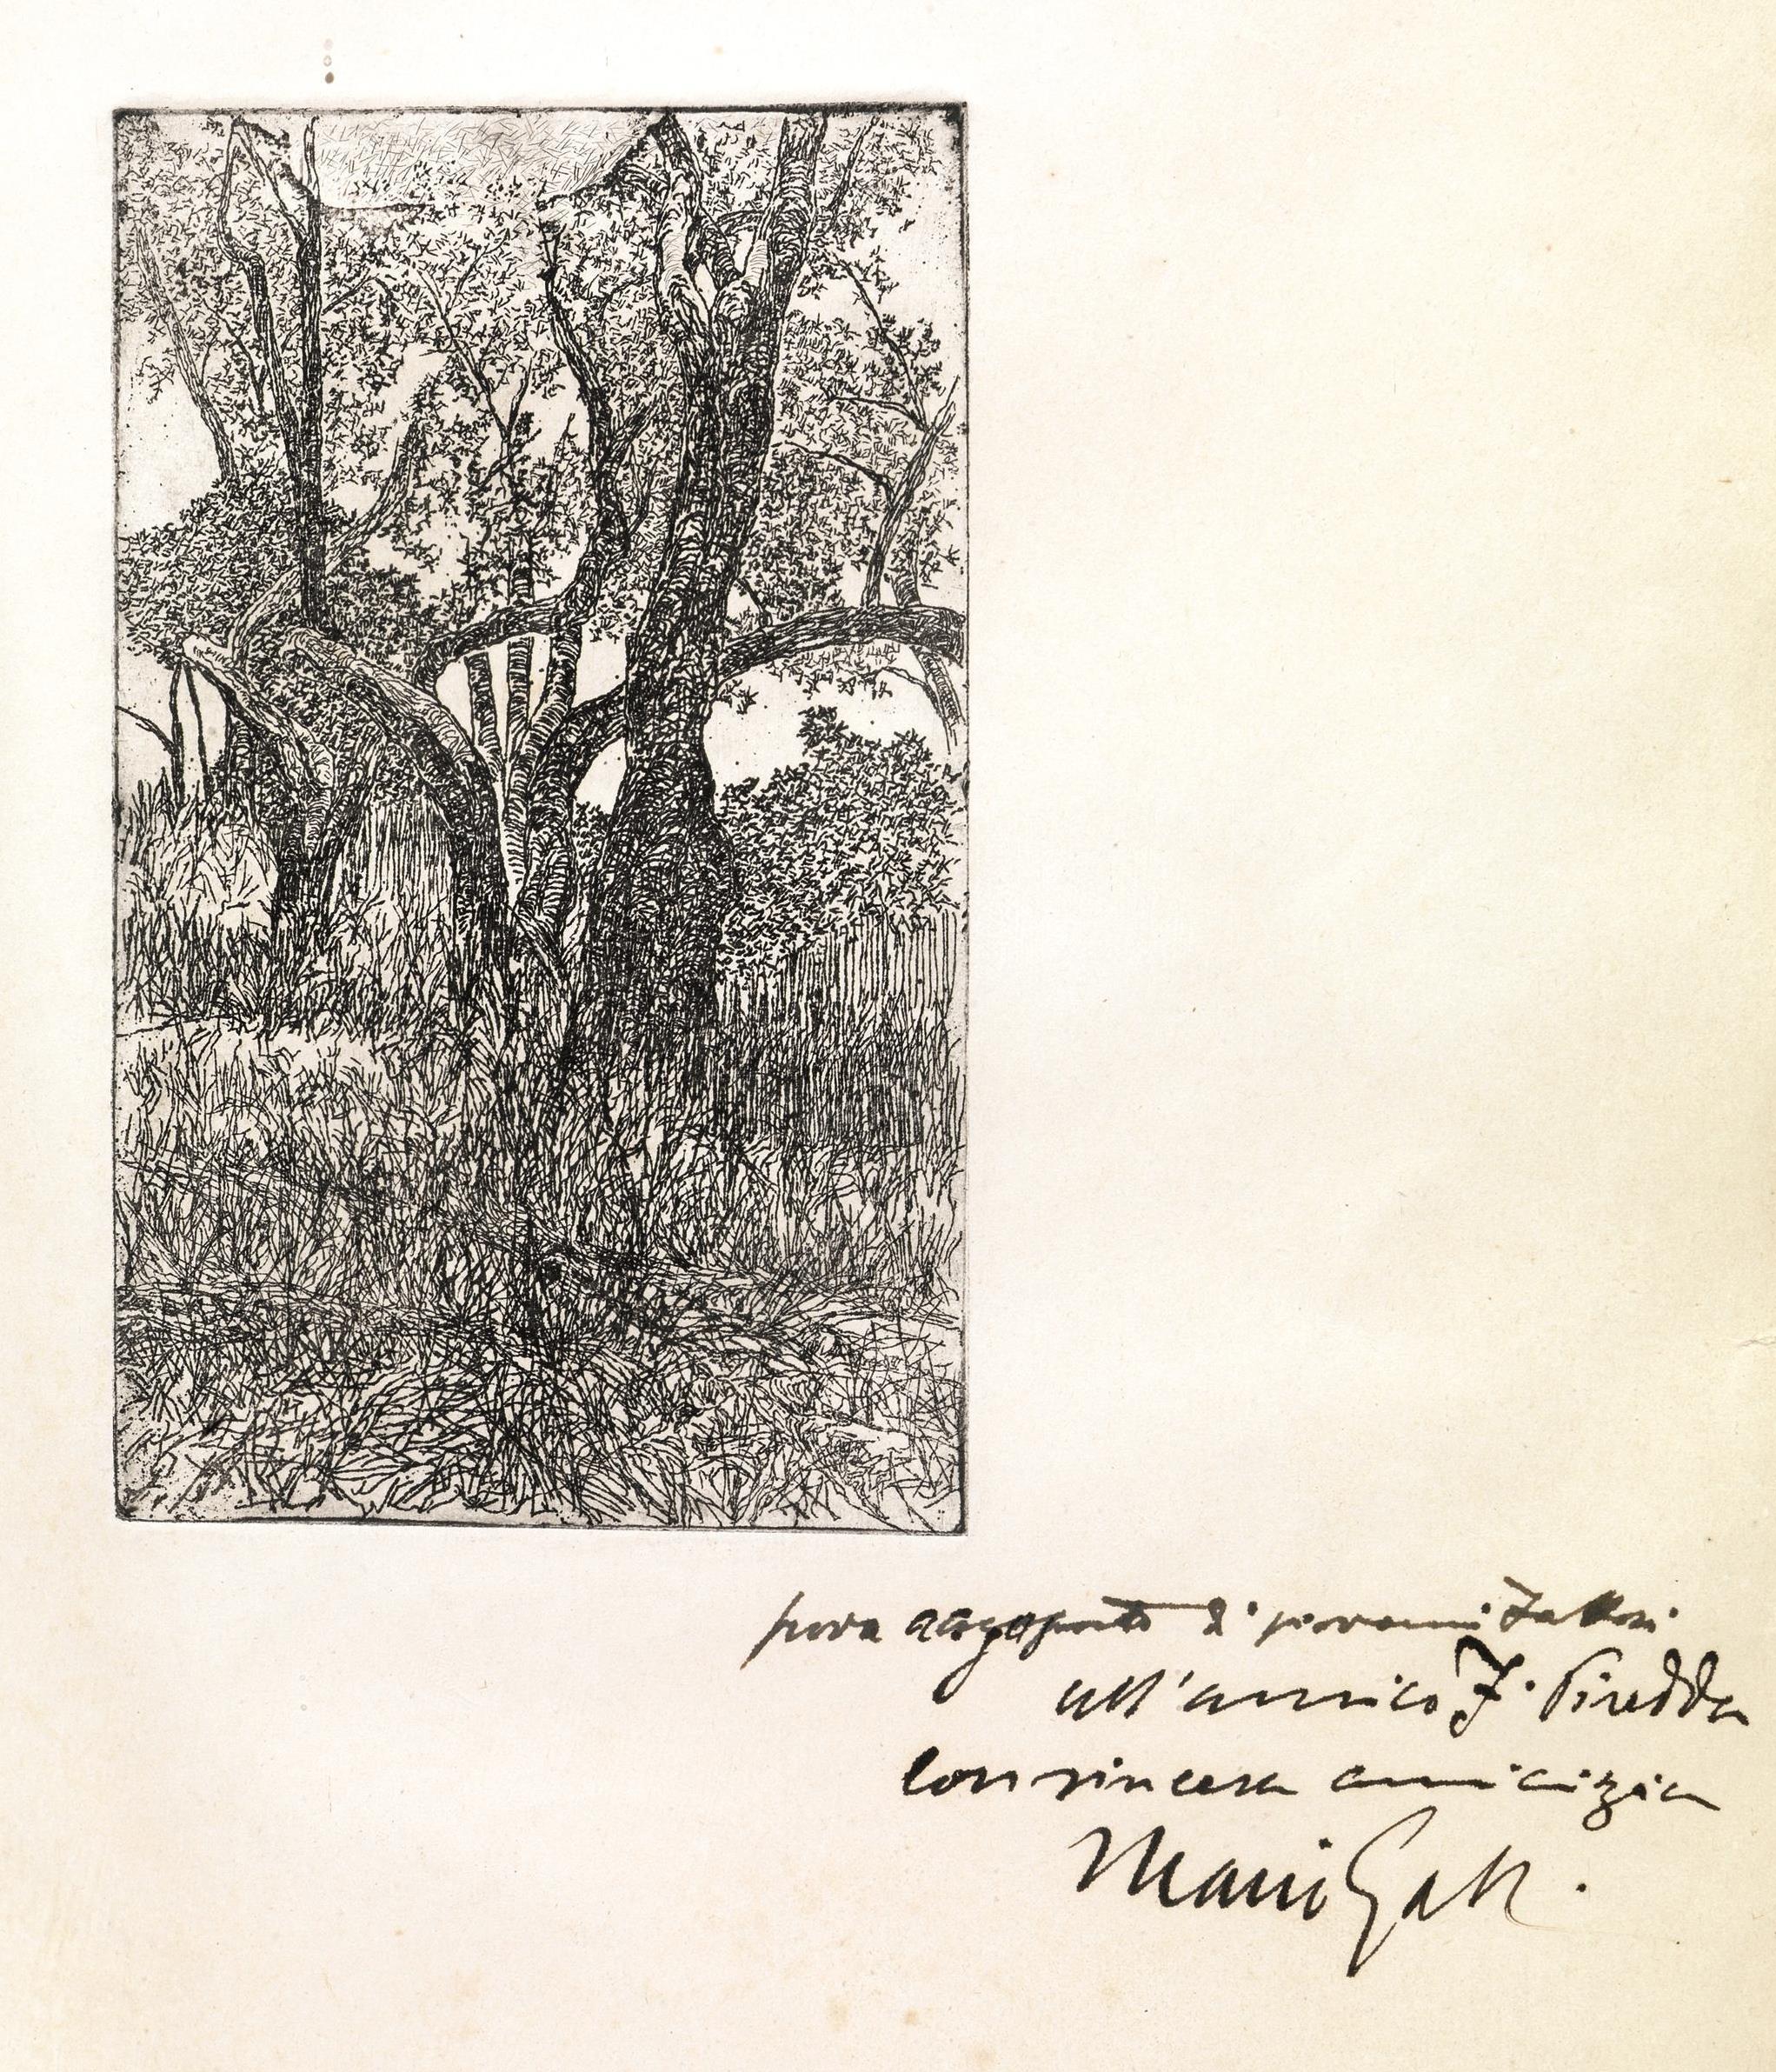 prova di giovanni Fattori
all'amico F. Piredda
con sincera amicizia
Mario Galli.